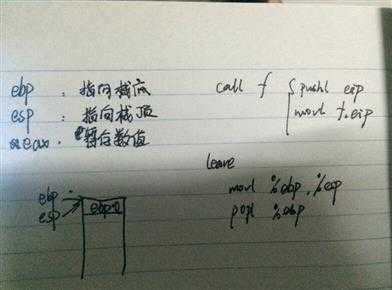 ebp : 指向栈底
esp : 指向栈顶
eax. 暂存数值
call f { pushl eip
movl f, eip
leave
movl %ebp, %esp
popl %ebp
ebp
esp
ebp0